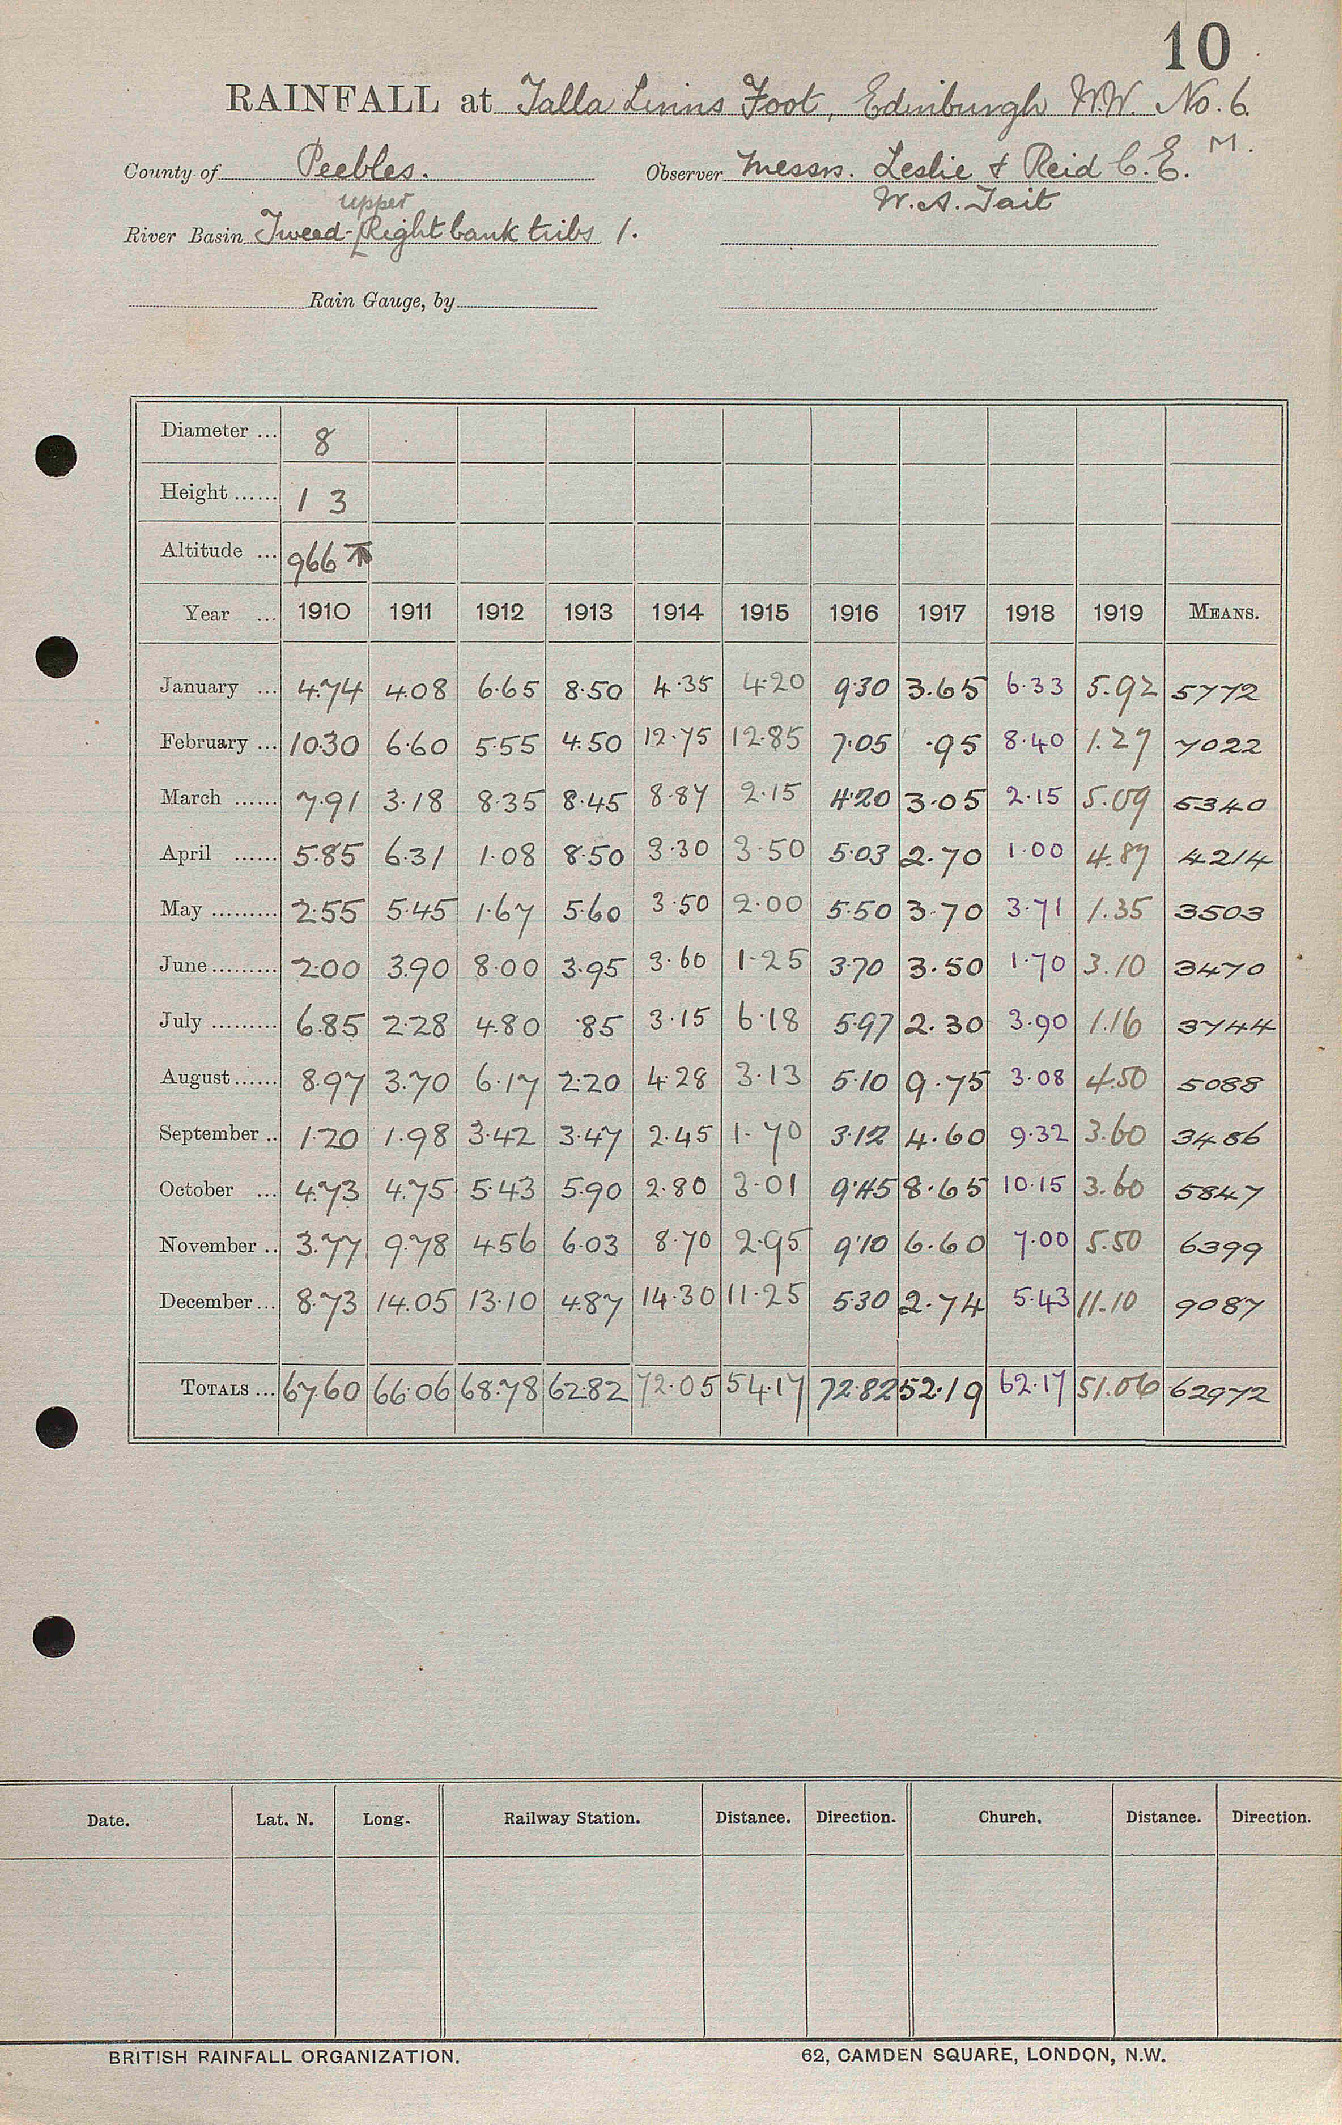 10
RAINFALL at Talla Linns Foot, Edinburgh W.W. No. 6
M.
County of Peebles. Observer Messrs. Leslie & Reid C.E.
upper W.A. Tait
River Basin Tweed-Right bank tribs 1.
Rain Gauge, by
Diameter ... 8
Height ...... 1 3
Altitude ... 966
Year ... 1910 1911 1912 1913 1914 1915 1916 1917 1918 1919 MEANS.
January ... 4.74 4.08 6.65 8.50 4.35 4.20 9.30 3.65 6.33 5.92 5772
February ... 10.30 6.60 5.55 4.50 12.75 12.85 7.05 .95 8.40 1.27 7022
March ...... 7.91 3.18 8.35 8.45 8.87 2.15 4.20 3.05 2.15 5.09 5340
April ...... 5.85 6.31 1.08 8.50 3.30 3.50 5.03 2.70 1.00 4.87 4214
May ......... 2.55 5.45 1.67 5.60 3.50 2.00 5.50 3.70 3.71 1.35 3503
June ......... 2.00 3.90 8.00 3.95 3.60 1.25 3.70 3.50 1.70 3.10 3470
July ......... 6.85 2.28 4.80 .85 3.15 6.18 5.97 2.30 3.90 1.16 3744
August ...... 8.97 3.70 6.17 2.20 4.28 3.13 5.10 9.75 3.08 4.50 5088
September .. 1.20 1.98 3.42 3.47 2.45 1.70 3.12 4.60 9.32 3.60 3486
October ... 4.73 4.75 5.43 5.90 2.80 3.01 9.45 8.65 10.15 3.60 5847
November .. 3.77 9.78 4.56 6.03 8.70 2.95 9.10 6.60 7.00 5.50 6399
December ... 8.73 14.05 13.10 4.87 14.30 11.25 5.30 2.74 5.43 11.10 9087
TOTALS ... 67.60 66.06 68.78 62.82 72.05 54.17 72.82 52.19 62.17 51.06 62972
Date. Lat. N. Long. Railway Station. Distance. Direction. Church. Distance. Direction.
BRITISH RAINFALL ORGANIZATION. 62, CAMDEN SQUARE, LONDON, N.W.